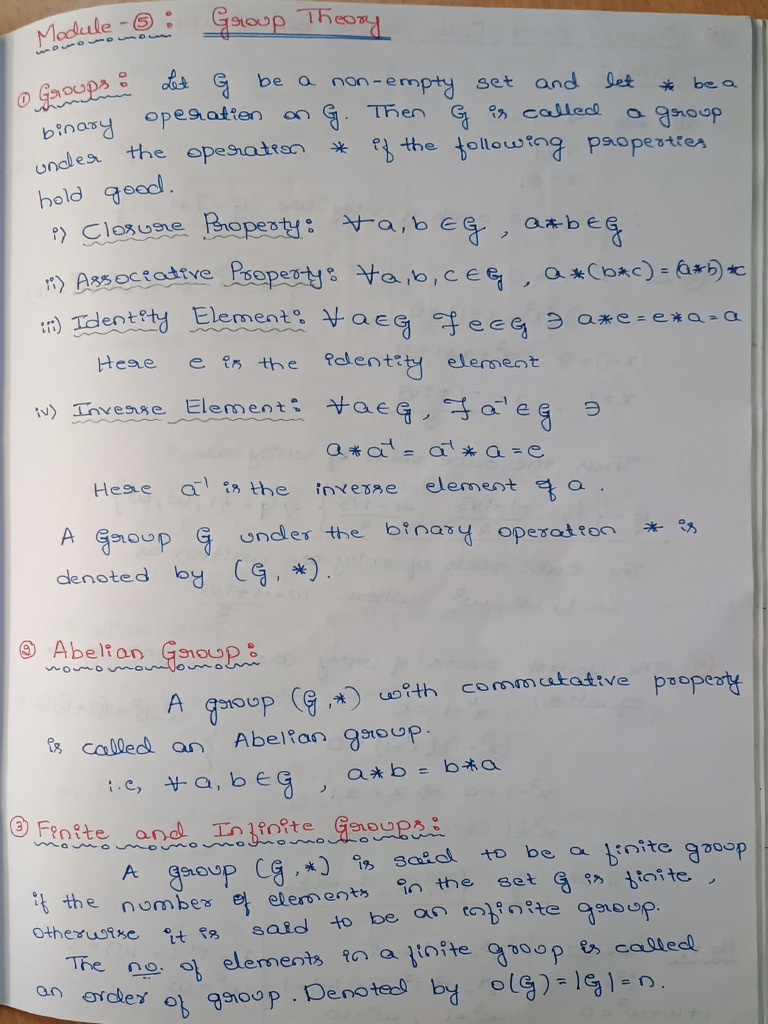 Module-⑤: Group Theory
① Groups: Let G be a non-empty set and let * be a
binary operation on G. Then G is called a group
under the operation * if the following properties
hold good.
i) Closure Property: ∀a,b∈G, a*b∈G
ii) Associative Property: ∀a,b,c∈G, a*(b*c)=(a*b)*c
iii) Identity Element: ∀a∈G ∃ e∈G ∋ a*e=e*a=a
Here e is the identity element
iv) Inverse Element: ∀a∈G, ∃ a⁻¹∈G ∋
a*a⁻¹ = a⁻¹*a=e
Here a⁻¹ is the inverse element of a.
A Group G under the binary operation * is
denoted by (G,*).
② Abelian Group:
A group (G,*) with commutative property
is called an Abelian group.
i.e, ∀a,b∈G, a*b = b*a
③ Finite and Infinite Groups:
A group (G,*) is said to be a finite group
if the number of elements in the set G is finite,
otherwise it is said to be an infinite group.
The no. of elements in a finite group is called
an order of group. Denoted by o(G)=|G|=n.